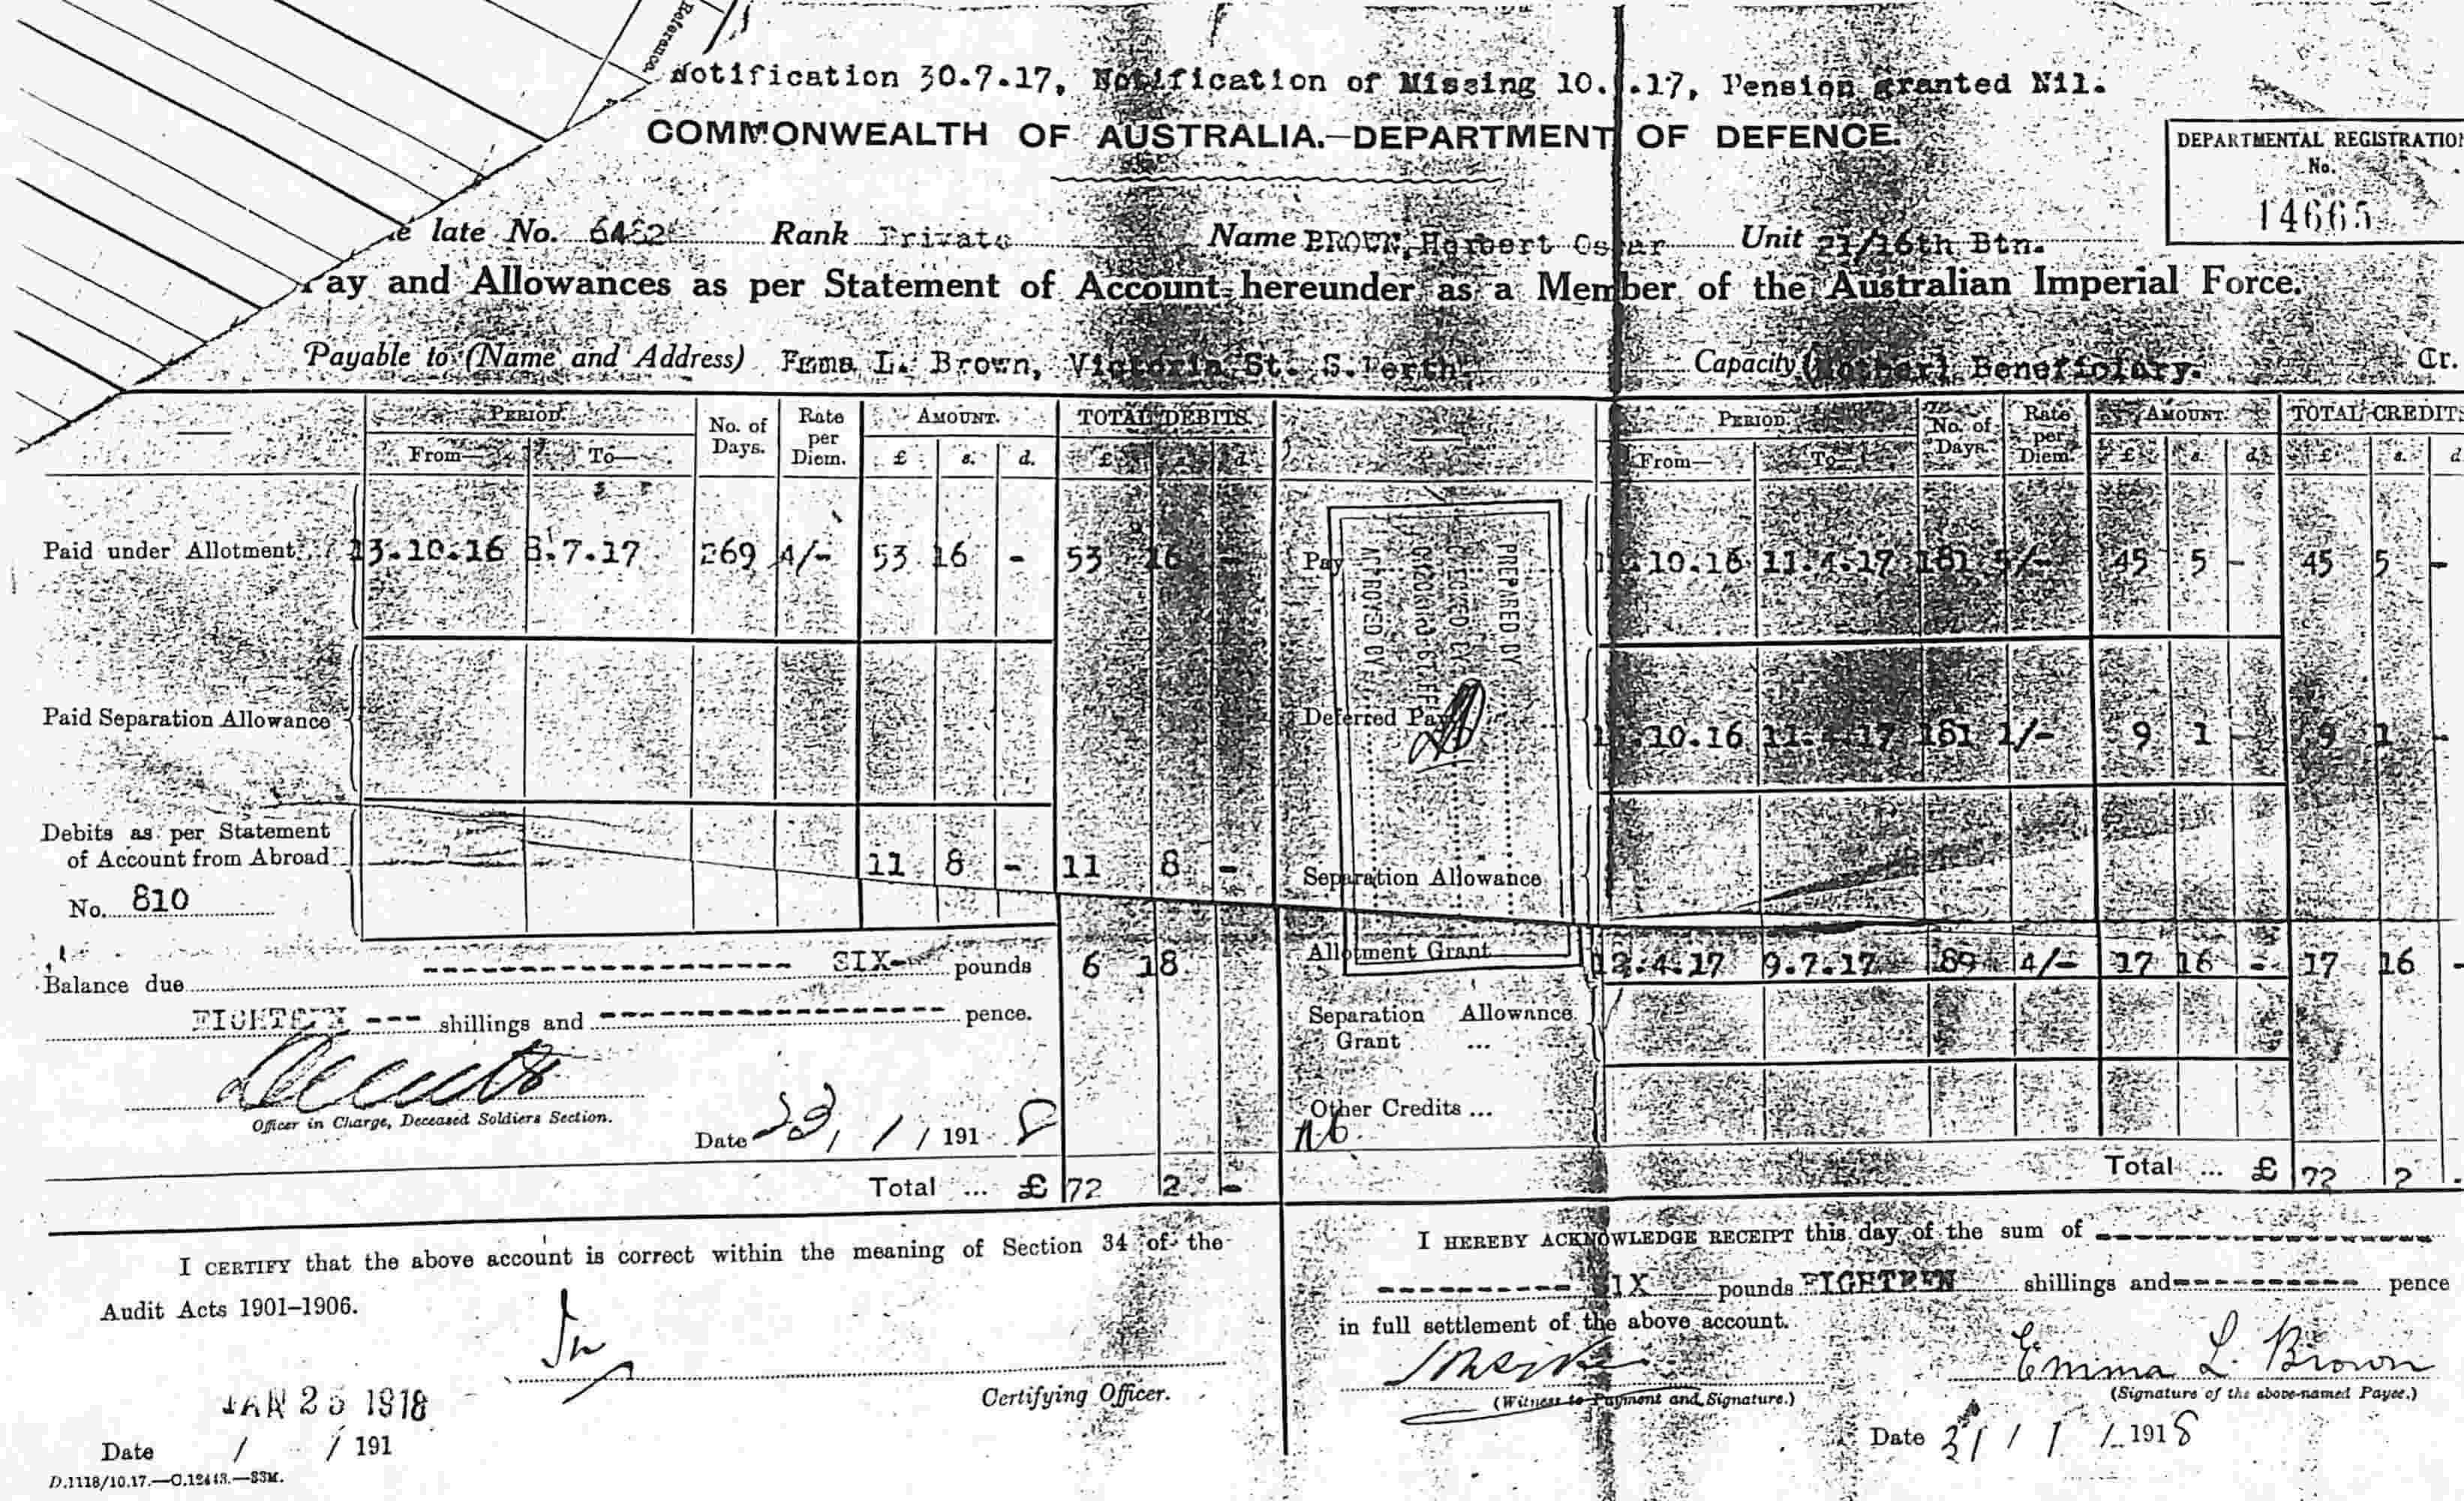 Reference
Notification 30.7.17, Notification of Missing 10. .17, Pension granted Nil.
COMMONWEALTH OF AUSTRALIA.—DEPARTMENT OF DEFENCE.
DEPARTMENTAL REGISTRATION
No.
14665
late No. Rank Private Name BROWN, Herbert Oscar Unit 21/16th Btn.
Pay and Allowances as per Statement of Account hereunder as a Member of the Australian Imperial Force.
Payable to (Name and Address) Emma L. Brown, Victoria St. S. Perth. Capacity (Mother) Beneficiary. Cr.
PERIOD No. of Days. Rate per Diem. AMOUNT. TOTAL DEBITS. PERIOD No. of Days. Rate per Diem. AMOUNT. TOTAL CREDITS
From— To— £ s. d. £ s. d. From— To— £ s. d. £ s. d
Paid under Allotment 13.10.16 8.7.17 269 4/- 53 16 - 53 16 - Pay .10.16 11.4.17 181 5/- 45 5 - 45 5 -
PREPARED BY
CHECKED BY
APPROVED BY
Paid Separation Allowance Deferred Pay .10.16 11.4.17 181 1/- 9 1 - 9 1 -
Debits as per Statement
of Account from Abroad 11 8 - 11 8 - Separation Allowance
No. 810
Balance due SIX pounds 6 18 Allotment Grant 12.4.17 9.7.17 89 4/- 17 16 - 17 16 -
EIGHTEEN --- shillings and pence. Separation Allowance
Grant ...
Officer in Charge, Deceased Soldiers Section. Other Credits ...
Date 23/1/1918
Total ... £ 72 2 - Total ... £ 72 2
I CERTIFY that the above account is correct within the meaning of Section 34 of the
Audit Acts 1901–1906.
Certifying Officer.
JAN 25 1918
Date / / 191
D.1118/10.17.—C.12443.—83M.
I HEREBY ACKNOWLEDGE RECEIPT this day of the sum of
SIX pounds EIGHTEEN shillings and pence
in full settlement of the above account.
Emma L. Brown
(Witness to Payment and Signature.) (Signature of the above-named Payee.)
Date 31/1/1918